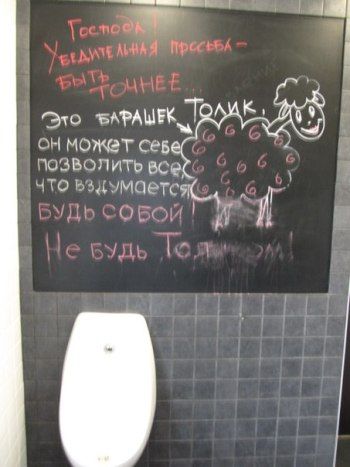 Господа!
Убедительная просьба –
быть
точнее...
Это барашек Толик,
он может себе
позволить все,
что вздумается
Будь собой!
Не будь Толиком!